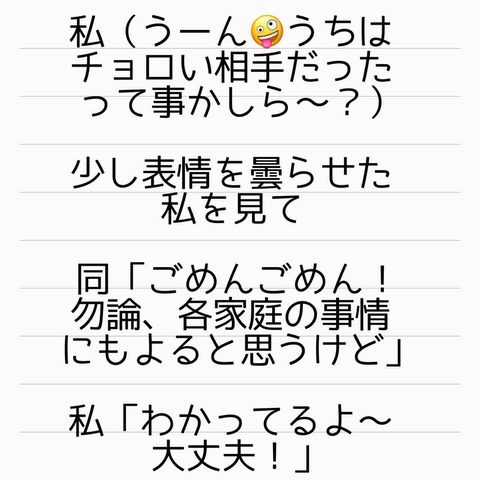 私（うーん🤪うちは
チョロい相手だった
って事かしら〜？）
少し表情を曇らせた
私を見て
同「ごめんごめん！
勿論、各家庭の事情
にもよると思うけど」
私「わかってるよ〜
大丈夫！」